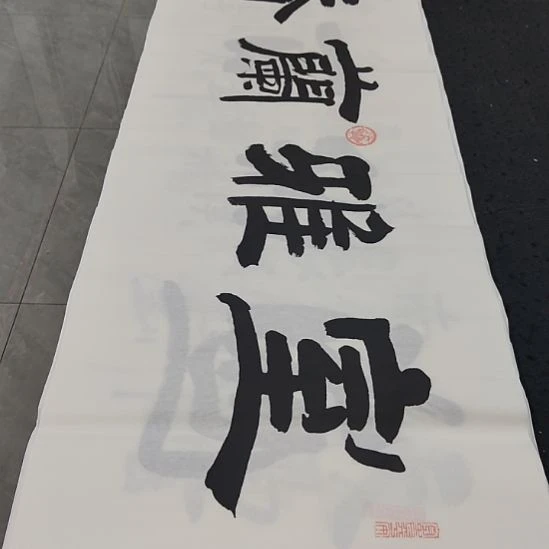 室雅蘭